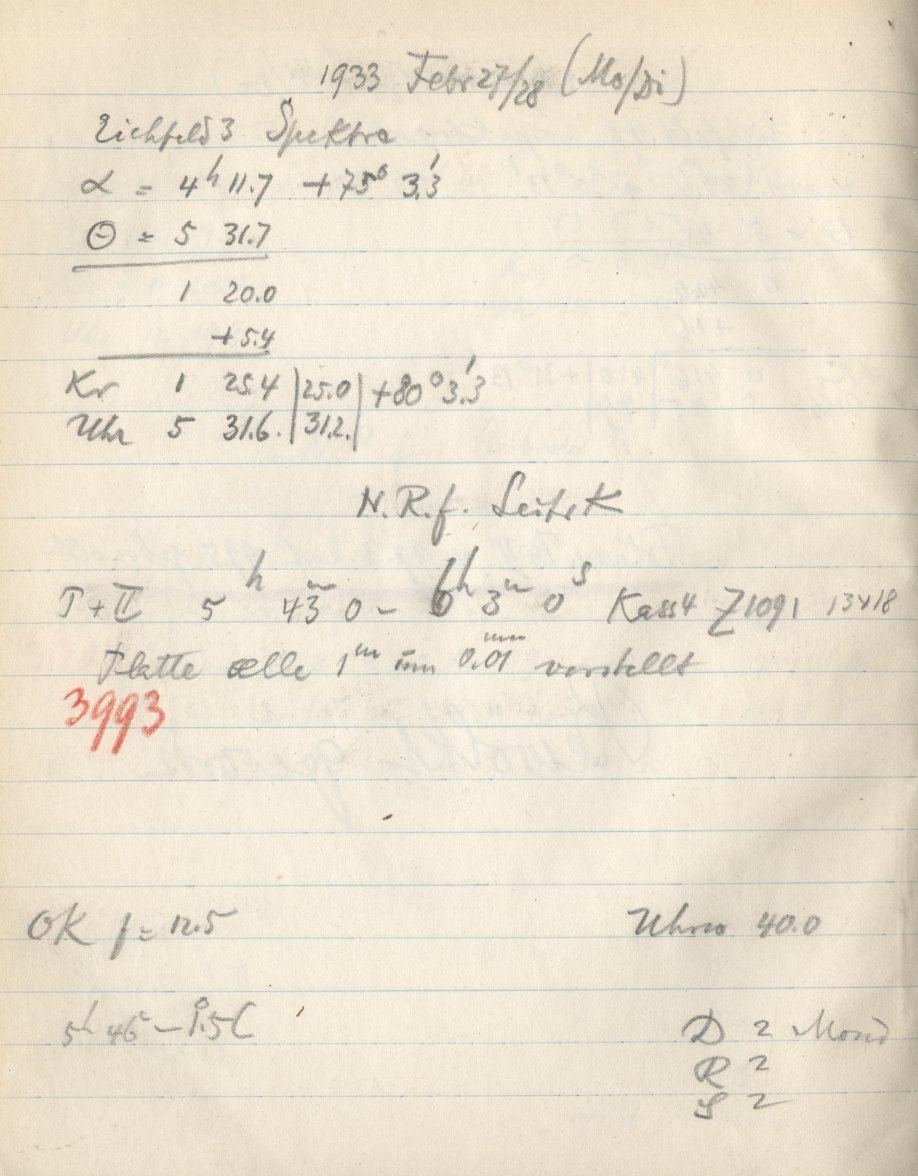 1933 Febr 27/28 (Mo/Di)
Eichfeld 3 Spektra
α = 4h 11.7 +75° 3.'3
Θ = 5 31.7
1 20.0
+5.4
Kr 1 25.4 |25.0| +80° 3.'3
Uhr 5 31.6. |31.2.|
N.R.f.
I+II 5h 43m 0 – 6h 3m 0s Kass4 Z1091 13418
Platte alle 1m um 0.01mm verstellt
3993
OK f = 12.5
Uhren 40.0
5h 46 – 1.5C
D 2 Mond
R 2
S 2